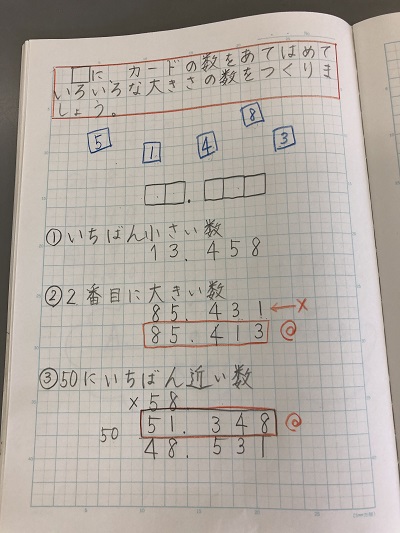 □に、カードの数をあてはめて
いろいろな大きさの数をつくりま
しょう。
5 1 4 8 3
□□.□□□
①いちばん小さい数
13.458
②2番目に大きい数
85.431←×
85.413
③50にいちばん近い数
×58
50 51.348
48.531